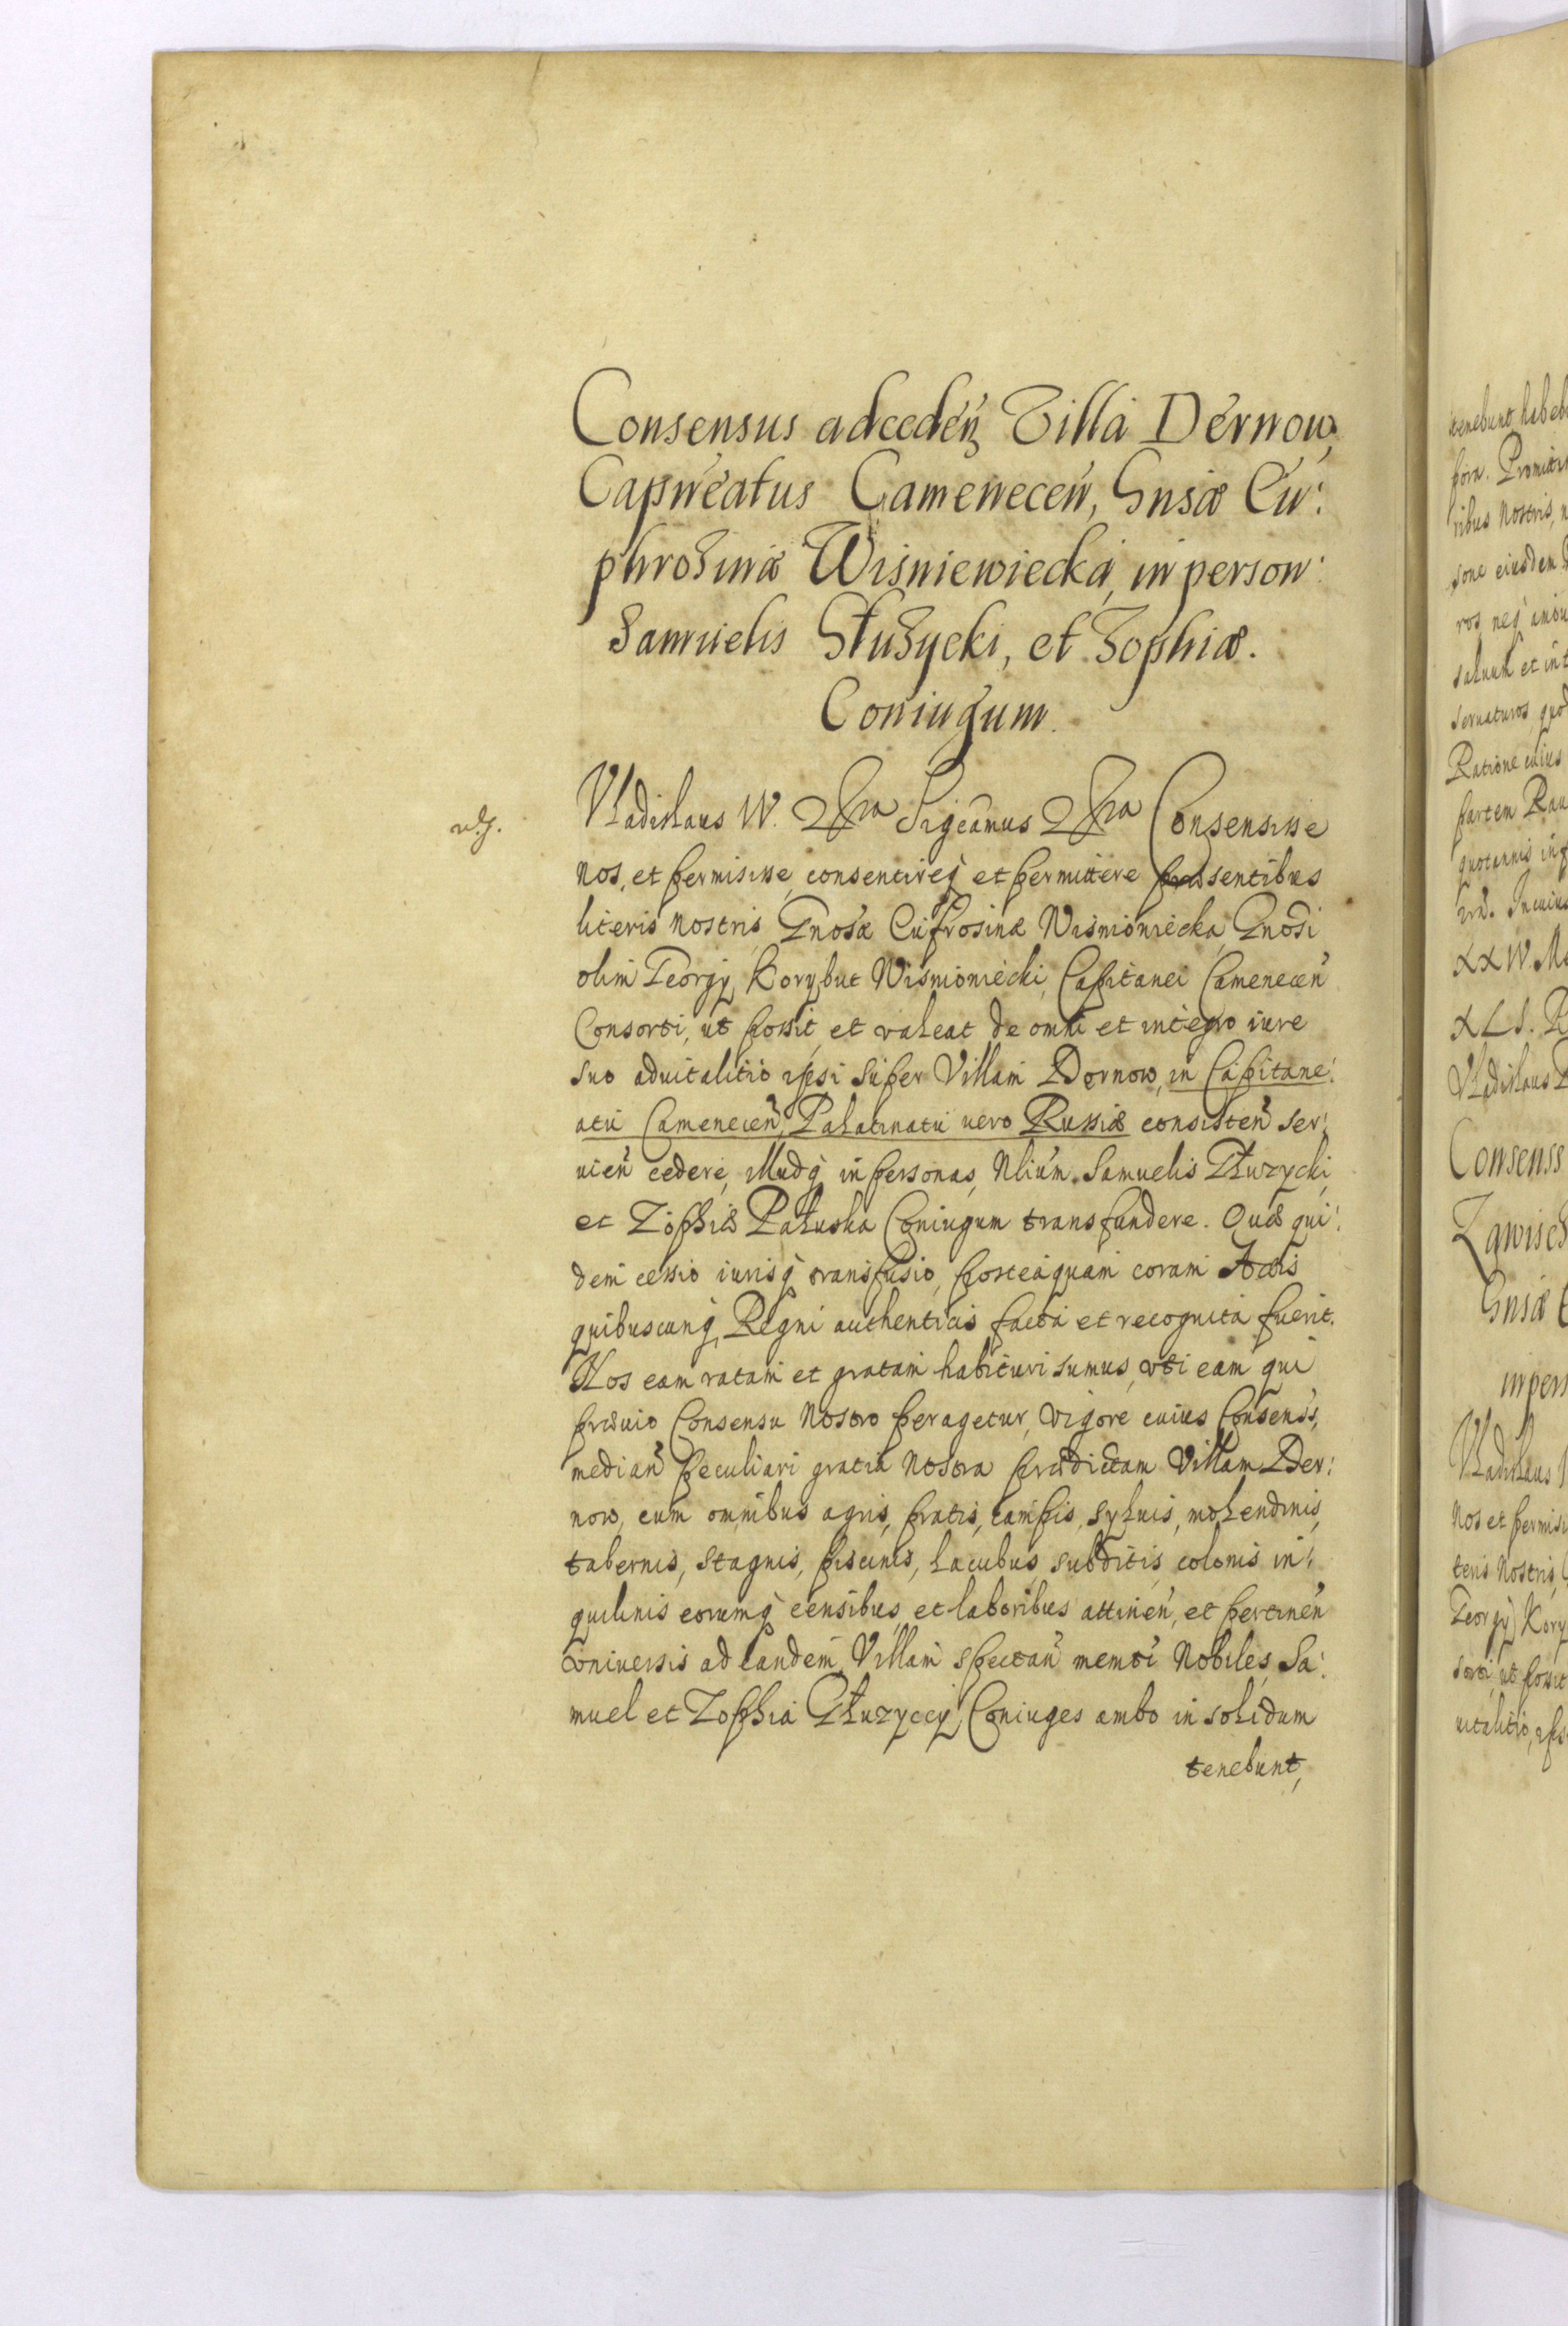 Consensus ad ceden̄ Villa Dernow,
Capneatus Camenecen̄, Gnsæ Eu:
phrosinæ Wisniewiecka, in person:
Samuelis Głuzycki, et Zophiæ
Coniugum.
Vladislaus IV. Significamus Consensisse
nos, et permisisse, consentireq et permittere præsentibus
literis nostris, Gnosæ Eufrosinæ Wisnioniecka, Gnosi
olim Georgy Korybut Wisnioniecki, Capitanei Camenecen̄
Consorti, ut possit, et valeat de omni et integro iure
suo aduitalitio ipsi super Villam Dernow, in Capitane:
atu Camenecen̄, Palatinatu uero Russiæ consisten̄ ser:
uien̄ cedere, illudq in personas, Nlium Samuelis Głuzycki,
et Zophiæ Pałuska Coniugum transfundere. Quæ qui:
dem cessio iurisq transfusio, posteaquam coram Actis
quibuscunq Regni authenticis facta et recognita fuerit.
Nos eam ratam et gratam habituri sumus, uti eam qui
præuio Consensu Nostro peragetur, vigore cuius Consens̄s,
median̄ peculiari gratia Nostra prædictam Villam Der:
now, cum omnibus agris, pratis, campis, syluis, molendinis,
tabernis, stagnis, piscinis, lacubus, subditis, colonis in:
quilinis eorumq censibus, et laboribus attinen̄, et pertinen̄
vniuersis ad eandem Villam spectan̄ memti Nobiles, Sa:
muel et Zophia Głuzyccy Coniuges ambo in solidum
tenebunt,
tenebunt habeb
ribus Nostris, n
sone eiusdem
saluum et int
seruaturos, quo
Ratione cuius
partem
quotannis inf
In cuius
XXIV. Ma
XLS. R
Vladislaus
Consenss
Zawisch
Gnsæ E
in pers
Vladislaus
Nos et permisi
teris Nostris,
Georgy Kory
sorti, ut possit
uitalitio, ips